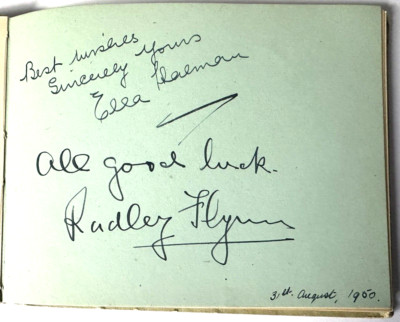 Best wishes
Sincerely Yours
Ella Halman
All good luck.
Radley Flynn
31st. August, 1950.